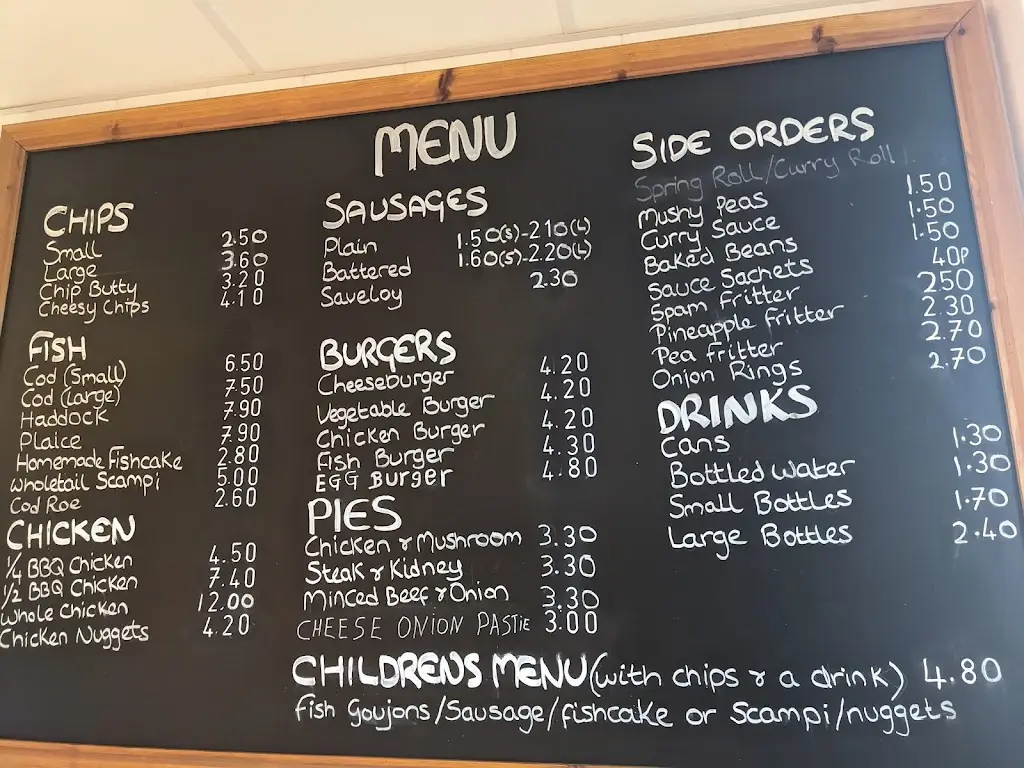 MENU
CHIPS
Small 2.50
Large 3.60
Chip Butty 3.20
Cheesy Chips 4.10
FISH
Cod (Small) 6.50
Cod (Large) 7.50
Haddock 7.90
Plaice 7.90
Homemade Fishcake 2.80
Wholetail Scampi 5.00
Cod Roe 2.60
CHICKEN
1/4 BBQ Chicken 4.50
1/2 BBQ Chicken 7.40
Whole Chicken 12.00
Chicken Nuggets 4.20
SAUSAGES
Plain 1.50(S)-2.10(L)
Battered 1.60(S)-2.20(L)
Saveloy 2.30
BURGERS
Cheeseburger 4.20
Vegetable Burger 4.20
Chicken Burger 4.20
Fish Burger 4.30
EGG Burger 4.80
PIES
Chicken & Mushroom 3.30
Steak & Kidney 3.30
Minced Beef & Onion 3.30
CHEESE ONION PASTIE 3.00
SIDE ORDERS
Spring Roll/Curry Roll
Mushy Peas 1.50
Curry Sauce 1.50
Baked Beans 1.50
Sauce Sachets 40P
Spam Fritter 250
Pineapple Fritter 2.30
Pea Fritter 2.70
Onion Rings 2.70
DRINKS
Cans 1.30
Bottled Water 1.30
Small Bottles 1.70
Large Bottles 2.40
CHILDRENS MENU (with chips & a drink) 4.80
Fish Goujons/Sausage/fishcake or Scampi/nuggets